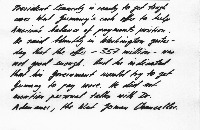 President Kennedy is ready to get tough
over West Germany's cash offer to help
America's balance of payments position.
He said bluntly in Washington yester-
day that the offer - £357 million - was
not good enough. And he indicated
that his Government would try to get
Germany to pay more. He did not
mention personal talks with Dr.
Adenauer, the West German Chancellor.